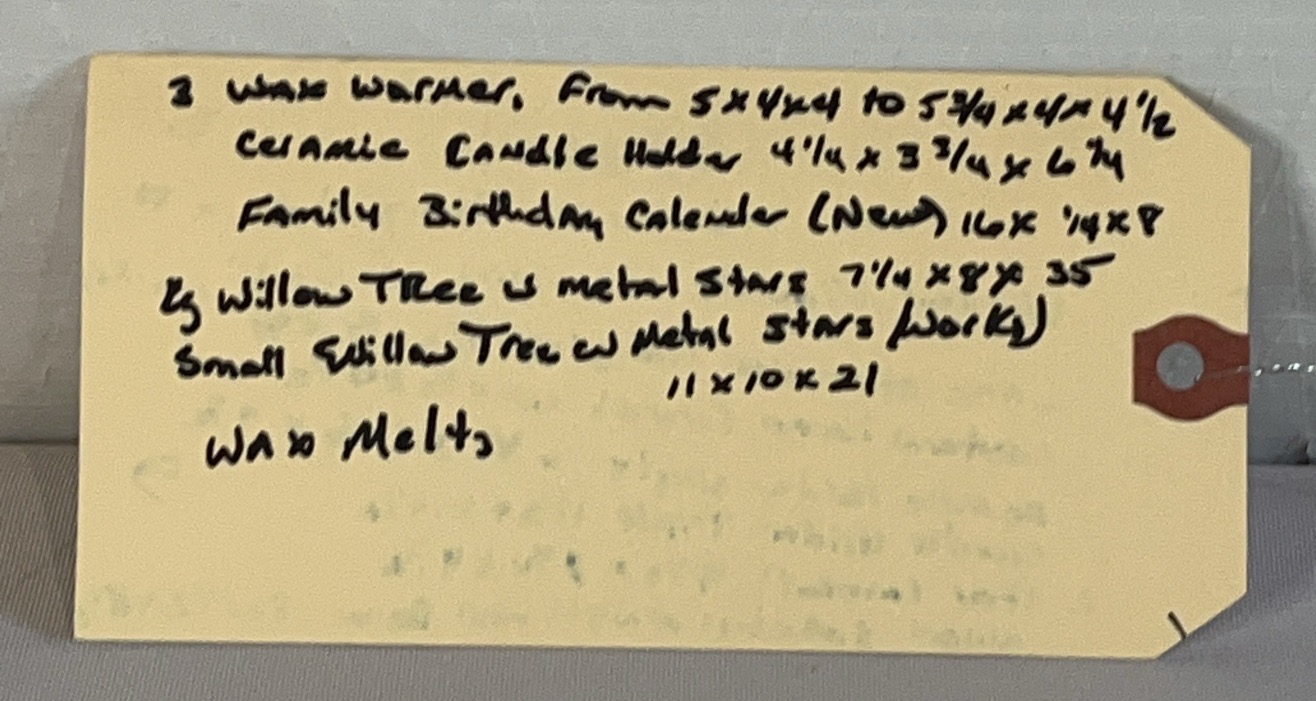 3 Wax Warmer. From 5x4x4 to 5 3/4 x 4 x 4 1/2
Ceramic Candle Holder 4 1/4 x 3 3/4 x 6 3/4
Family Birthday Calender (New) 16 x 1/4 x 8
Lg Willow Tree w metal Stars 7 1/4 x 8 x 35
Small Willow Tree w Metal Stars (Works)
11 x 10 x 21
Wax Melts